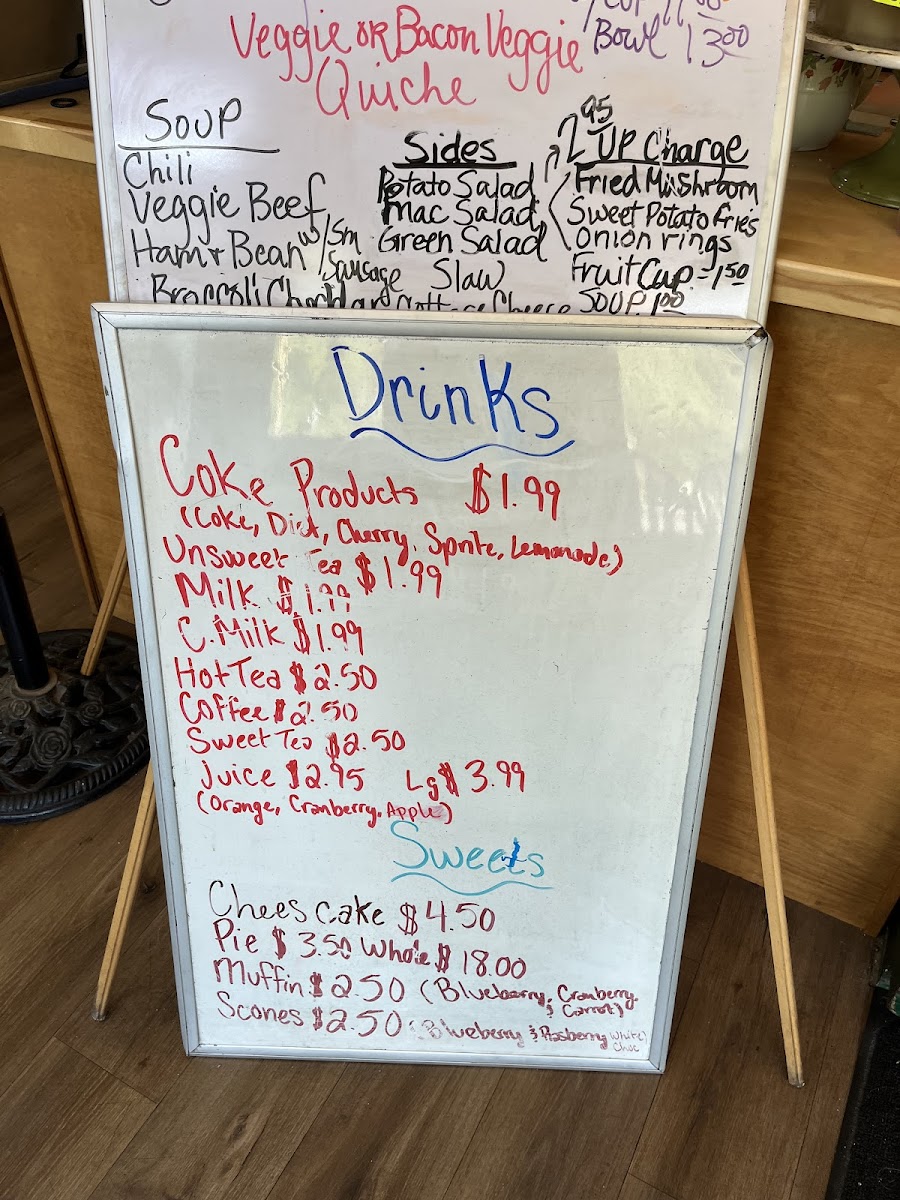 Cup 11.00
Veggie OR Bacon Veggie Bowl 13.00
Quiche
Soup
Chili
Veggie Beef
Ham + Bean w/ Sm Sausage
Broccoli Cheddar
Sides
Potato Salad
Mac Salad
Green Salad
Slaw
Cottage Cheese
2.95 UP Charge
Fried Mushroom
Sweet Potato fries
Onion rings
Fruit Cup - 1.50
SOUP 1.00
Drinks
Coke Products $1.99
(Coke, Diet, Cherry, Sprite, Lemonade)
Unsweet Tea $1.99
Milk $1.99
C. Milk $1.99
Hot Tea $2.50
Coffee $2.50
Sweet Tea $2.50
Juice $2.95 Lg $3.99
(Orange, Cranberry, Apple)
Sweets
Chees cake $4.50
Pie $3.50 Whole $18.00
Muffin $2.50 (Blueberry, Cranberry, & Carrot)
Scones $2.50 (Blueberry & Rasberry White Choc)